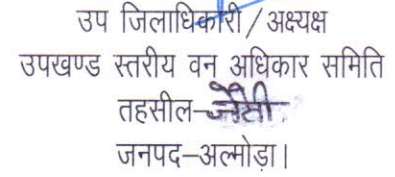 उप जिलाधिकारी/अक्ष्यक्ष
उपखण्ड स्तरीय वन अधिकार समिति
तहसील-जैंती
जनपद-अल्मोड़ा।